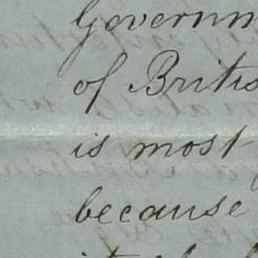 Governm
of Britis
is most
because